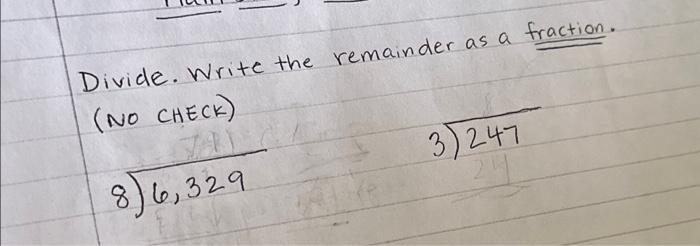 Divide. Write the remainder as a fraction.
(NO CHECK)
8)6,329
3)247